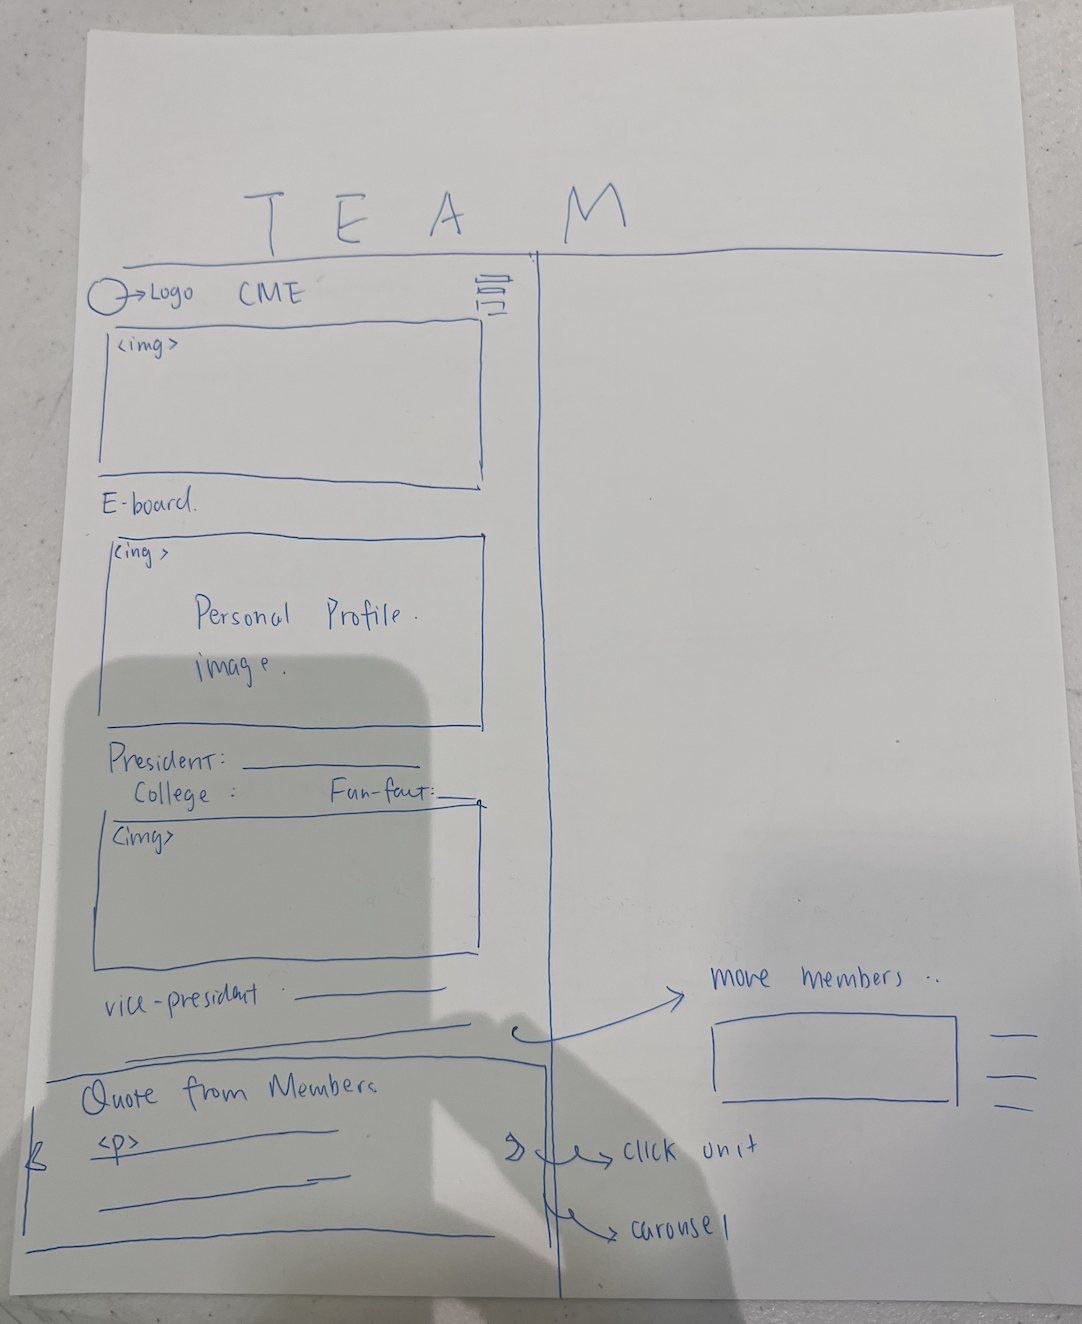 TEAM
Logo CME
<img>
E-board.
<img>
Personal Profile.
image.
President:
College : Fun-fact:
<img>
vice-president
more members ..
Quote from Members
<p>
click unit
carousel